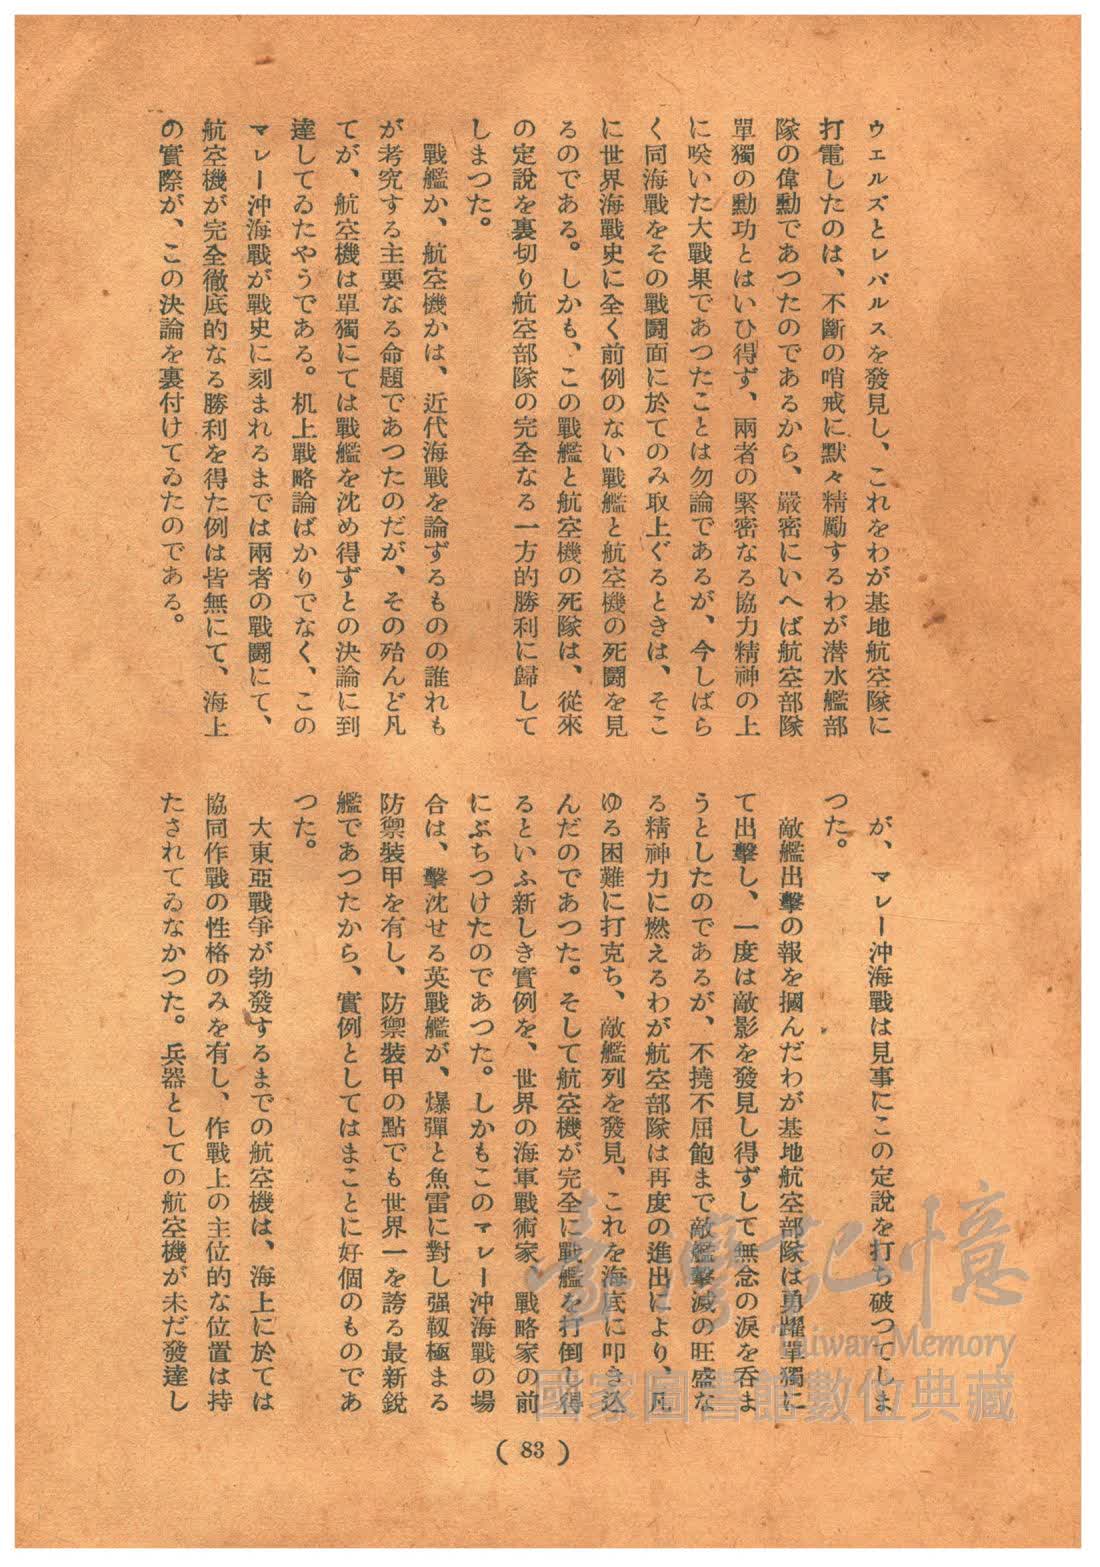 ウェルズとレパルスを發見し、これをわが基地航空隊に
打電したのは、不斷の哨戒に默々精勵するわが潜水艦部
隊の偉勳であつたのであるから、嚴密にいへば航空部隊
單獨の勳功とはいひ得ず、兩者の緊密なる協力精神の上
に咲いた大戰果であつたことは勿論であるが、今しばら
く同海戰をその戰鬪面に於てのみ取上ぐるときは、そこ
に世界海戰史に全く前例のない戰艦と航空機の死鬪を見
るのである。しかも、この戰艦と航空機の死隊は、從來
の定說を裏切り航空部隊の完全なる一方的勝利に歸して
しまつた。
戰艦か、航空機かは、近代海戰を論ずるものの誰れも
が考究する主要なる命題であつたのだが、その殆んど凡
てが、航空機は單獨にては戰艦を沈め得ずとの決論に到
達してゐたやうである。机上戰略論ばかりでなく、この
マレー沖海戰が戰史に刻まれるまでは兩者の戰鬪にて、
航空機が完全徹底的なる勝利を得た例は皆無にて、海上
の實際が、この決論を裏付けてゐたのである。
が、マレー沖海戰は見事にこの定說を打ち破つてしま
つた。
敵艦出擊の報を摑んだわが基地航空部隊は勇躍單獨に
て出擊し、一度は敵影を發見し得ずして無念の淚を吞ま
うとしたのであるが、不撓不屈飽まで敵艦擊滅の旺盛な
る精神力に燃えるわが航空部隊は再度の進出により、凡
ゆる困難に打克ち、敵艦列を發見、これを海底に叩き込
んだのであつた。そして航空機が完全に戰艦を打倒し得
るといふ新しき實例を、世界の海軍戰術家、戰略家の前
にぶちつけたのであつた。しかもこのマレー沖海戰の場
合は、擊沈せる英戰艦が、爆彈と魚雷に對し强靱極まる
防禦裝甲を有し、防禦裝甲の點でも世界一を誇る最新銳
艦であつたから、實例としてはまことに好個のものであ
つた。
大東亞戰爭が勃發するまでの航空機は、海上に於ては
協同作戰の性格のみを有し、作戰上の主位的な位置は持
たされてゐなかつた。兵器としての航空機が未だ發達し
( 83 )
臺灣記憶
Taiwan Memory
國家圖書館數位典藏